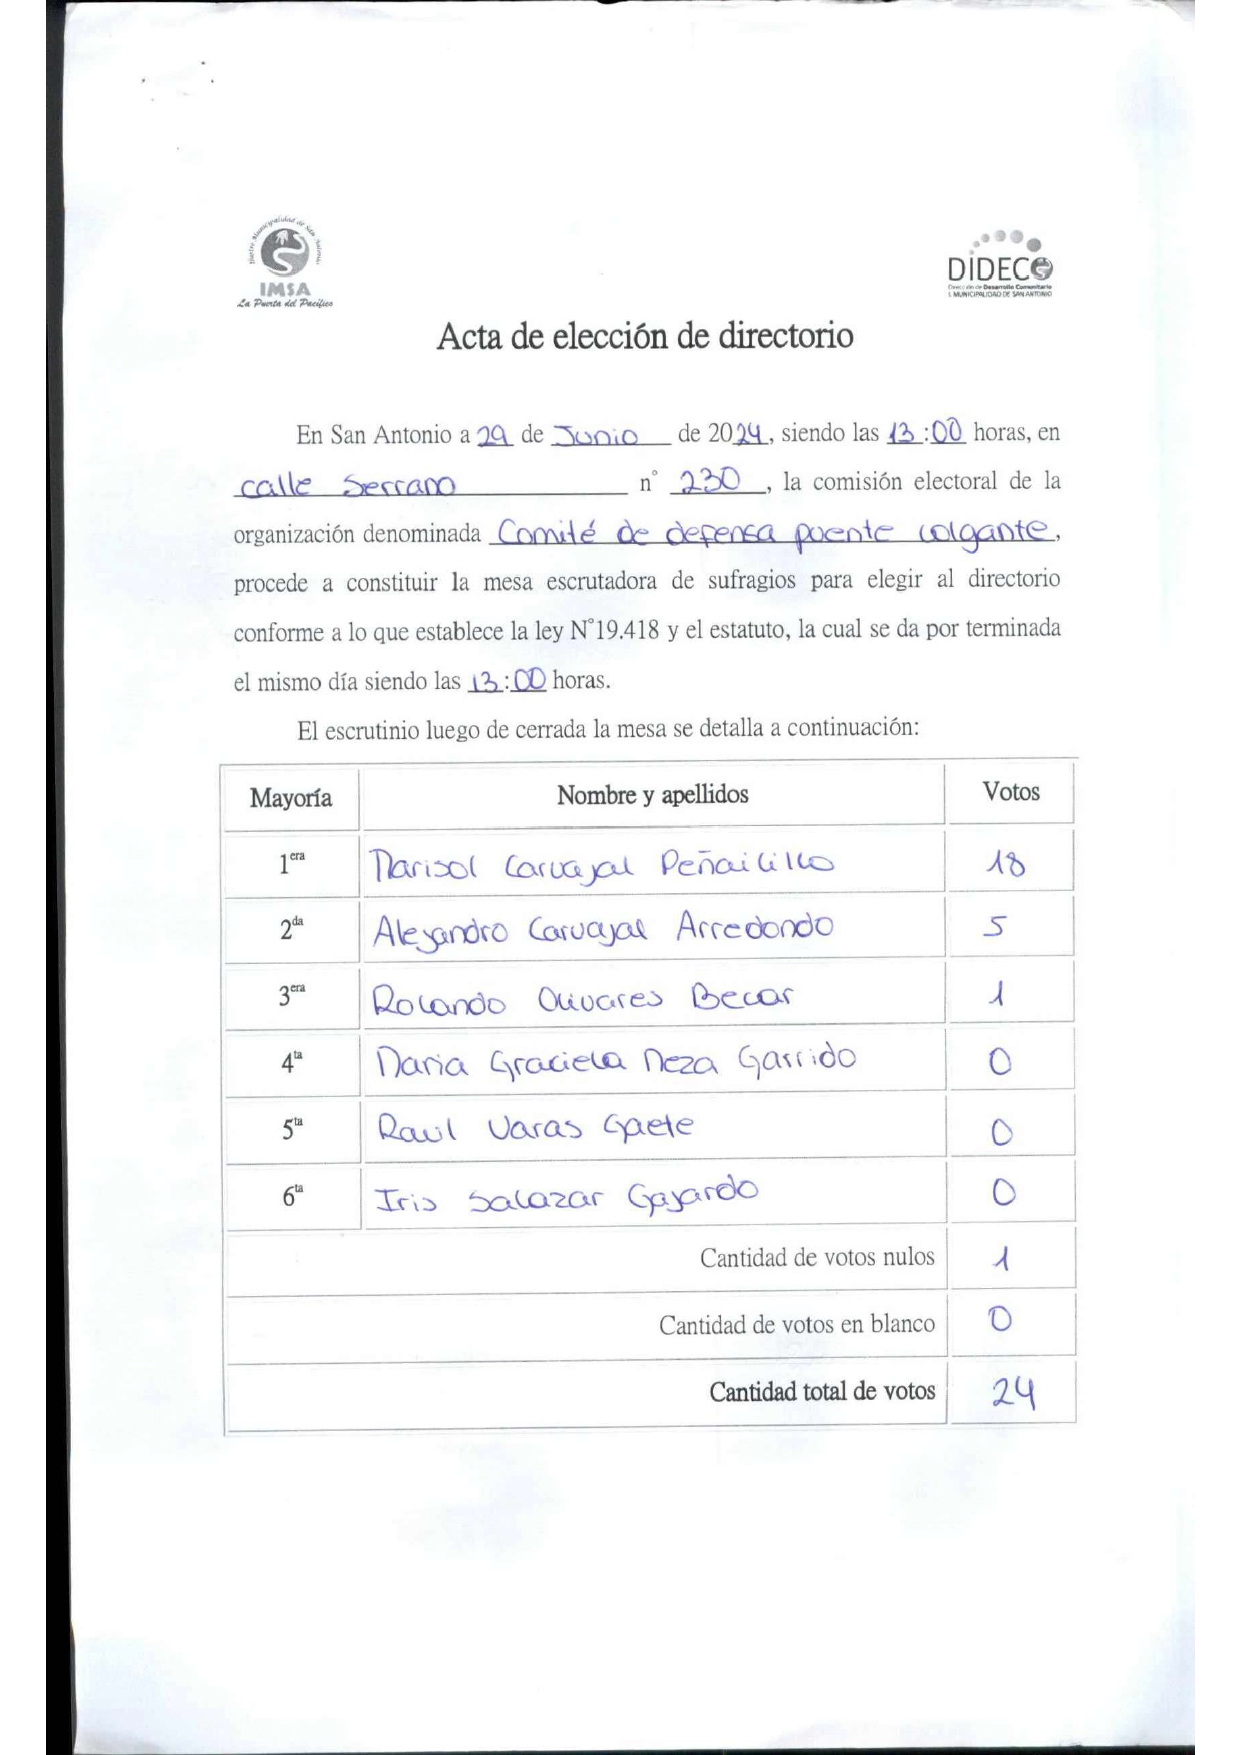 Ilustre Municipalidad de San Antonio
IMSA
La Puerta del Pacífico
DIDECO
Dirección de Desarrollo Comunitario
I. MUNICIPALIDAD DE SAN ANTONIO
Acta de elección de directorio
En San Antonio a 29 de Junio de 2024, siendo las 13:00 horas, en
calle Serrano n° 230, la comisión electoral de la
organización denominada Comité de defensa puente colgante,
procede a constituir la mesa escrutadora de sufragios para elegir al directorio
conforme a lo que establece la ley N°19.418 y el estatuto, la cual se da por terminada
el mismo día siendo las 13:00 horas.
El escrutinio luego de cerrada la mesa se detalla a continuación:
Mayoría Nombre y apellidos Votos
1era Marisol Carvajal Peñailillo 18
2da Alejandro Carvajal Arredondo 5
3era Rolando Olivares Becar 1
4ta Maria Graciela Meza Garrido 0
5ta Raúl Varas Gaete 0
6ta Iris Salazar Gajardo 0
Cantidad de votos nulos 1
Cantidad de votos en blanco 0
Cantidad total de votos 24